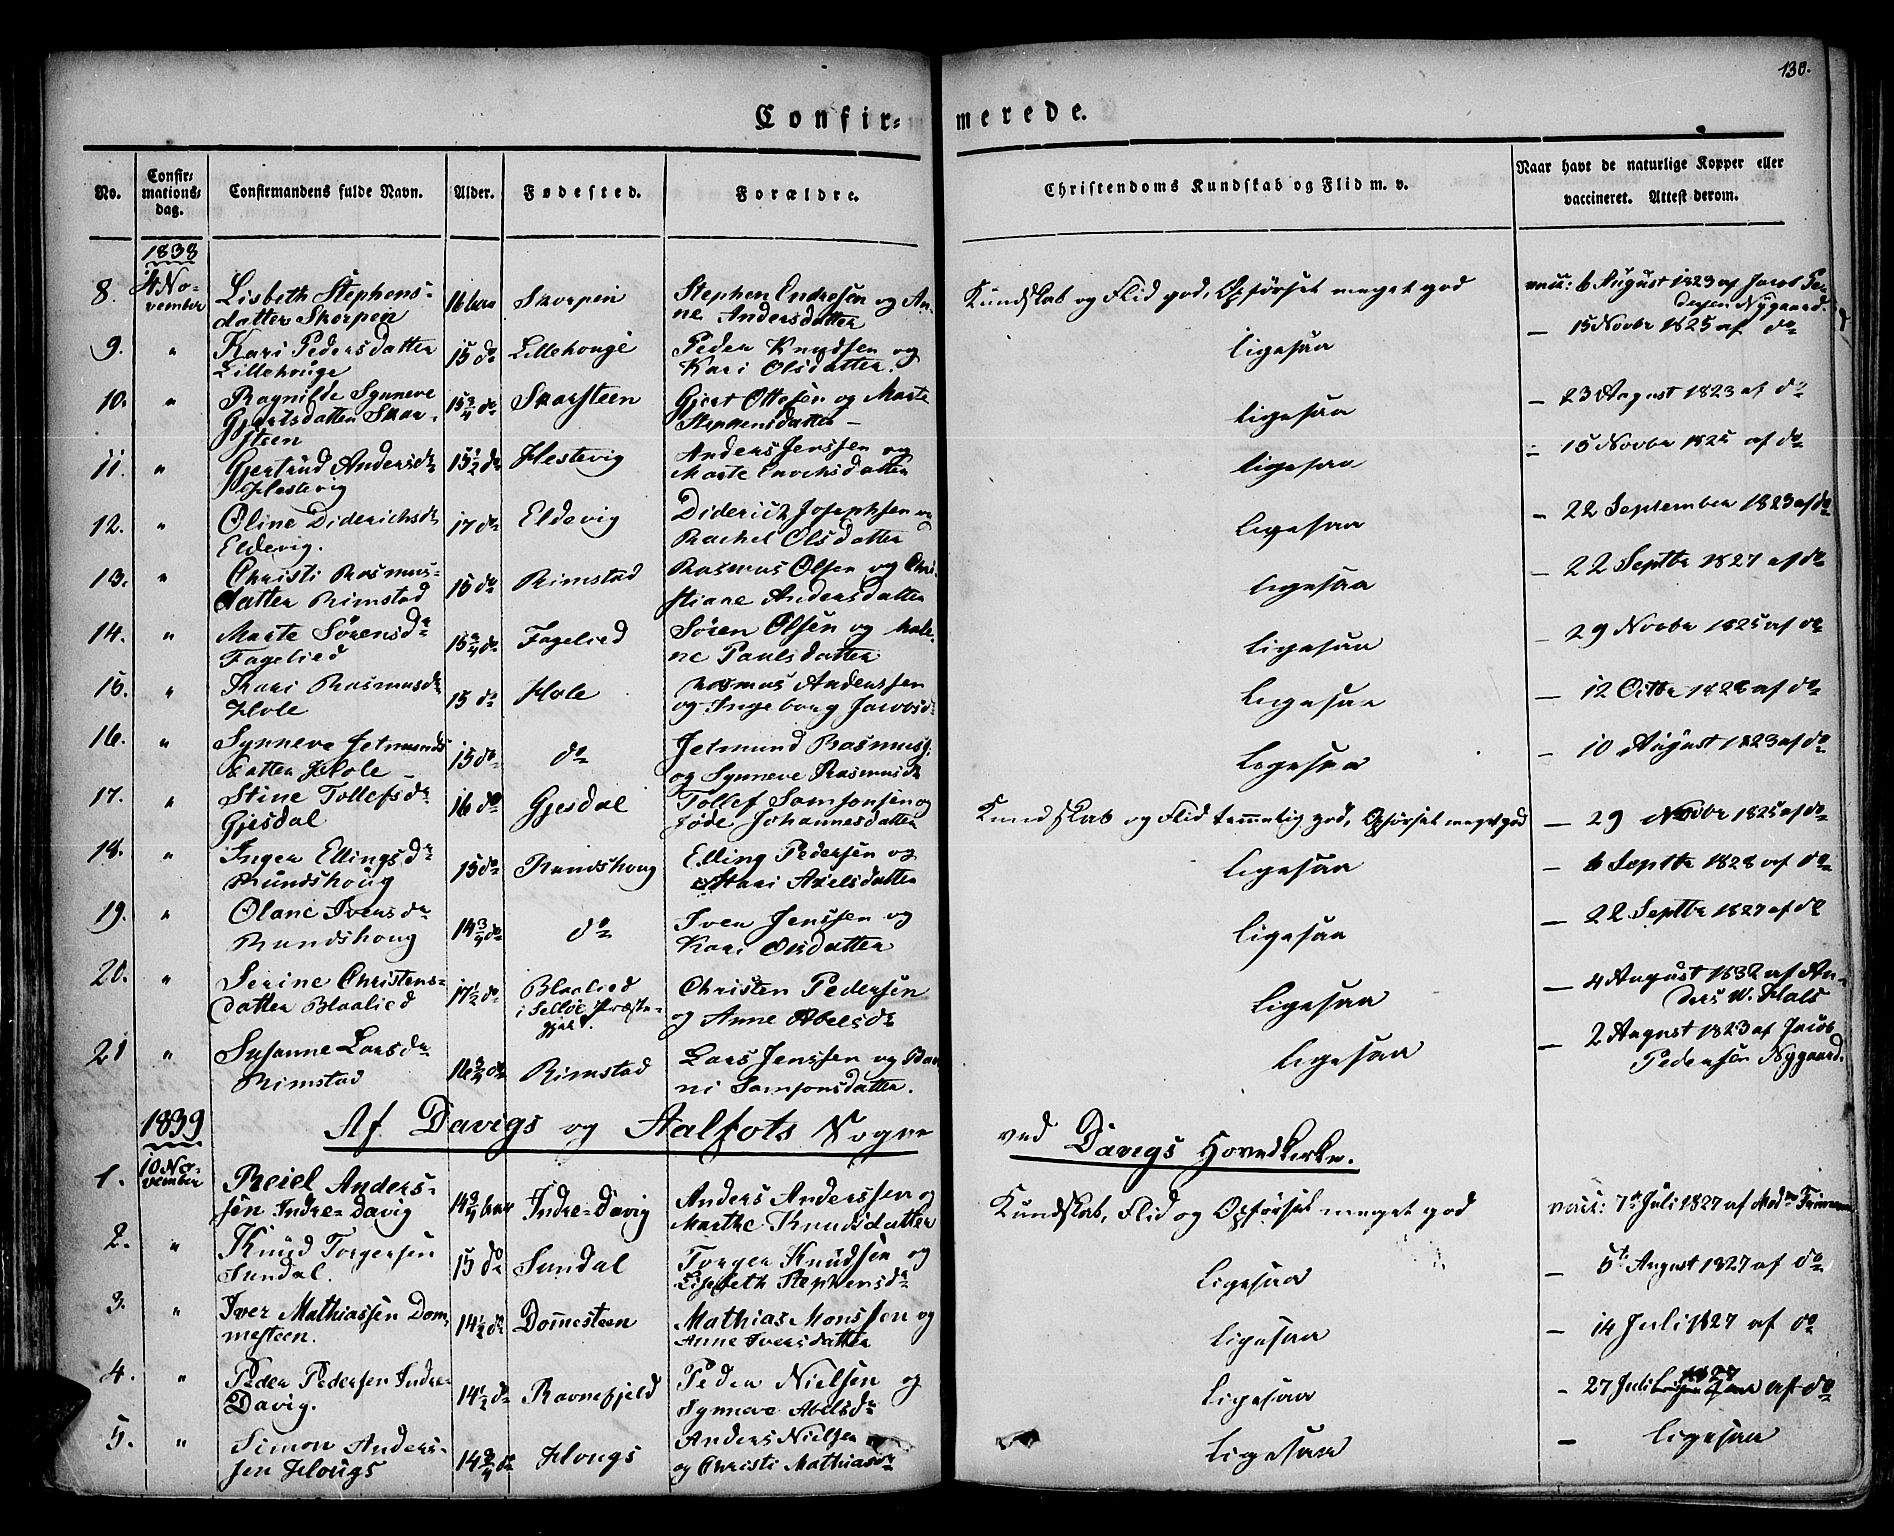 130.
Confir=merede.
No. | Confir=mations=dag. | Confirmandens fulde Navn. | Alder. | Fødested. | Forældre. | Christendoms Kundskab og Flid m. v. | Naar havt de naturlige Kopper eller vaccineret. Attest derom.
1838
8. | 4 No=vember | Lisbeth Stephens=datter Skorpen | 16 | Skorpen | Stephen Endresen og An=ne Andersdatter | Kundskab og Flid god, Opførsel meget god | vacc: 6 August 1823 af Jacob Pe=dersen Nygaard.
9. | " | Kari Pedersdatter Lillehouge | 15 do | Lillehouge | Peder Knudsen og Kari Olsdatter. | ligesaa | — 15 Novbr 1825 af do
10. | " | Ragnilde Synneve Gjertsdatter Skar=steen | 15 3/4 do | Skarsteen | Gjert Ottesen og Marte Stephensdatter — | ligesaa | — 23 August 1823 af do
11. | " | Gjertrud Andersdr Hestevig | 15 1/2 do | Hestevig | Anders Jenssen og Marte Enochsdatter | ligesaa | — 15 Novbr 1825 af do
12. | " | Oline Diderichsdr Eldevig. | 17 do | Eldevig | Diderich Josephsen og Rachel Olsdatter | ligesaa | — 22 September 1823 af do
13. | " | Christi Rasmus=datter Rimstad | 15 do | Rimstad | Rasmus Olsen og Chri=stiane Andersdatter | ligesaa | — 22 Septbr 1827 af do
14. | " | Marte Sørensdr Fagelied | 15 3/4 do | Fagelied | Søren Olsen og Male=ne Paulsdatter | ligesaa | — 29 Novbr 1825 af do
15. | " | Kari Rasmusdr Hole | 15 do | Hole | Rasmus Anderssen og Ingeborg Jacobsdr | ligesaa | — 12 Octbr 1828 af do
16. | " | Synneve Jetmunds datter Hole — | 15 do | do | Jetmund Rasmuss. og Synneve Rasmusdr | ligesaa | — 10 August 1823 af do
17. | " | Stine Tollefsdr Gjesdal | 16 do | Gjesdal | Tollef Samsonsen og Jøde Johannesdatter | Kundskab og Flid temmelig god, Opførsel meget god | — 29 Novbr 1825 af do
18. | " | Inger Ellingsdr Rundshoug | 15 do | Rundshoug | Elling Pedersen og Mari Axelsdatter | ligesaa | — 6 Septbr 1828 af do
19. | " | Olane Iversdr Rundshoug | 14 3/4 do | do | Iver Jenssen og Kari Olsdatter | ligesaa | — 22 Septbr 1827 af do
20. | " | Serine Christens=datter Blaalied | 17 1/2 do | Blaalied i Selløe Præste=gjeld. | Christen Pedersen og Anne Abelsdr | ligesaa | — 4 August 1832 af An=ders W. Hals
21 | " | Susanne Larsdr Rimstad | 16 3/4 do | Rimstad | Lars Jenssen og Bar=ni Samsonsdatter. | ligesaa | — 2 August 1823 af Jacob Pedersen Nygaard.
1839 | Af Davigs og Aalfots Sogne ved Davigs Hovedkirke.
1. | 10 No=vember | Reiel Anders=sen Indre=Davig | 14 3/4 | Indre=Davig | Anders Anderssen og Marthe Knudsdatter | Kundskab, Flid og Opførsel meget god | vacc: 7de Juli 1827 af
2. | " | Knud Torgersen Sundal. | 15 do | Sundal | Torger Knudsen og Lisebeth Stephensdr | ligesaa | — 5t August 1827 af do
3. | " | Iver Mathiassen Dom=mesteen. | 14 1/2 do | Dom̅esteen | Mathias Monssen og Anne Iversdatter | ligesaa | — 14 Juli 1827 af do
4. | " | Peder Pedersen Indre=Davig. | 14 1/2 do | Ravnefjeld | Peder Nielsen og Synneve Abelsdr | ligesaa | — 27 Juli 1827 af do
5. | " | Simon Anders=sen Hougs | 14 3/4 do | Hougs | Anders Nielsen og Christi Mathiasdr | ligesaa | — ligesaa